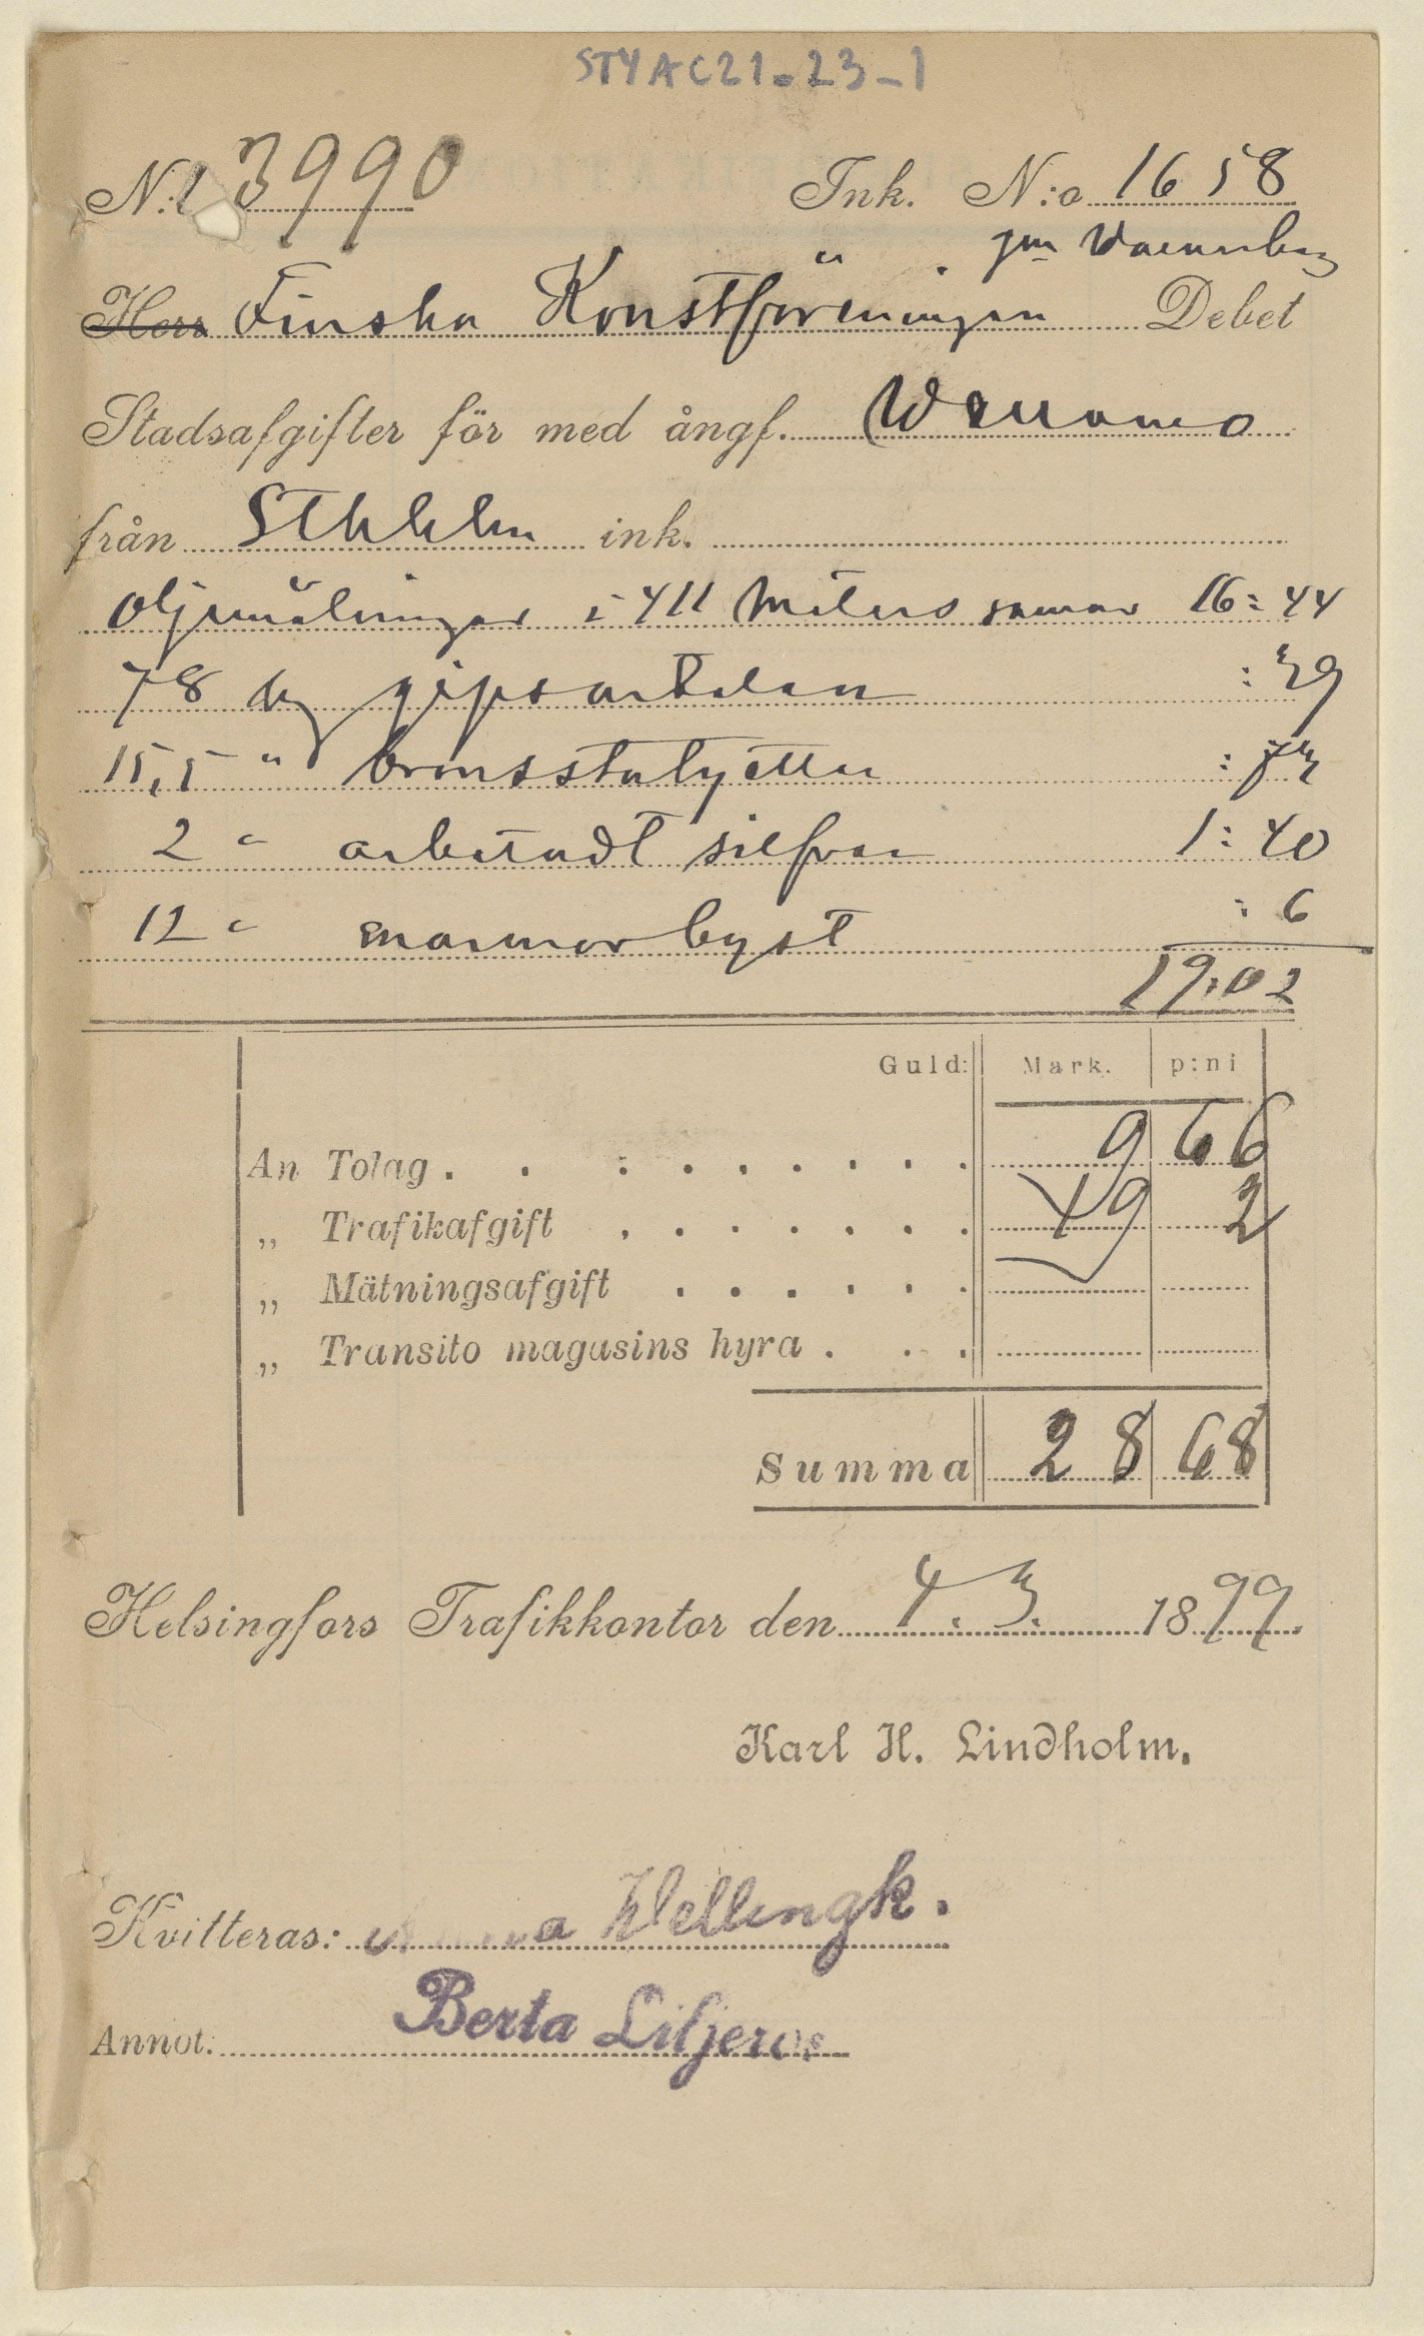 STYAC21-23-1
N:o 3990 Ink. N:o 1658
Herr Finska Konstföreningen Debet
Stadsafgifter för med ångf. Wellamo
från Sthhlm ink.
Oljemålningar i 411 16:44
78 kg gipsartiklar :39
15,5 " bronsstatyetter :73
2 " arbetadt silfver 1:40
12 " marmorbyst :6
19:02
Guld: Mark. p:ni
An Tolag . . . . . . . . . 9 66
„ Trafikafgift . . . . . . . 19 2
„ Mätningsafgift . . . . . .
„ Transito magasins hyra . . .
Summa 28 68
Helsingfors Trafikkontor den 4.3. 1899.
Karl H. Lindholm.
Kvitteras: Wellingk.
Annot: Berta Liljeros